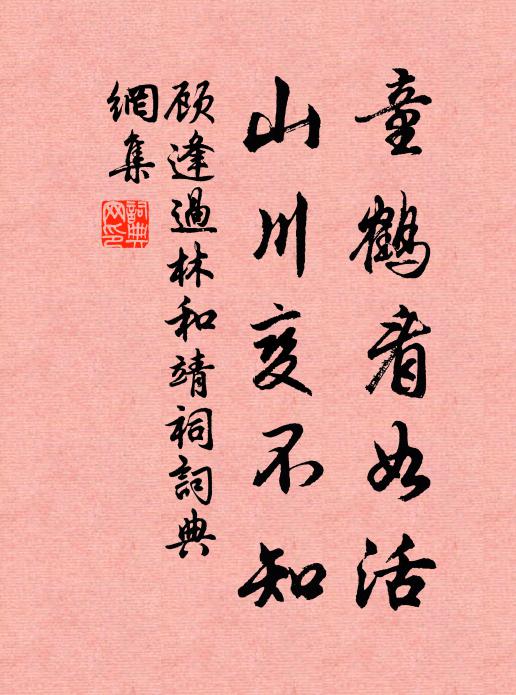 童鶴看如活
山川变不知
顾逢過林和靖祠詞典
網集
詞典
网印